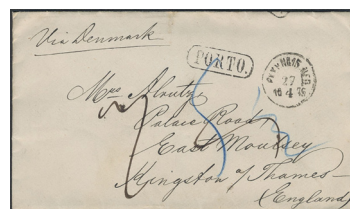 Via Denmark
PORTO.
27
4
Mrs
Palace Road
East Moulsey
Kingston o/ Thames
(England)